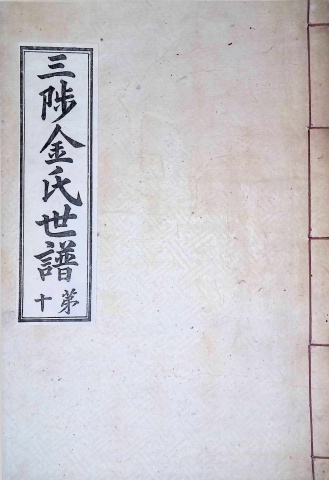 三陟金氏世譜
第十